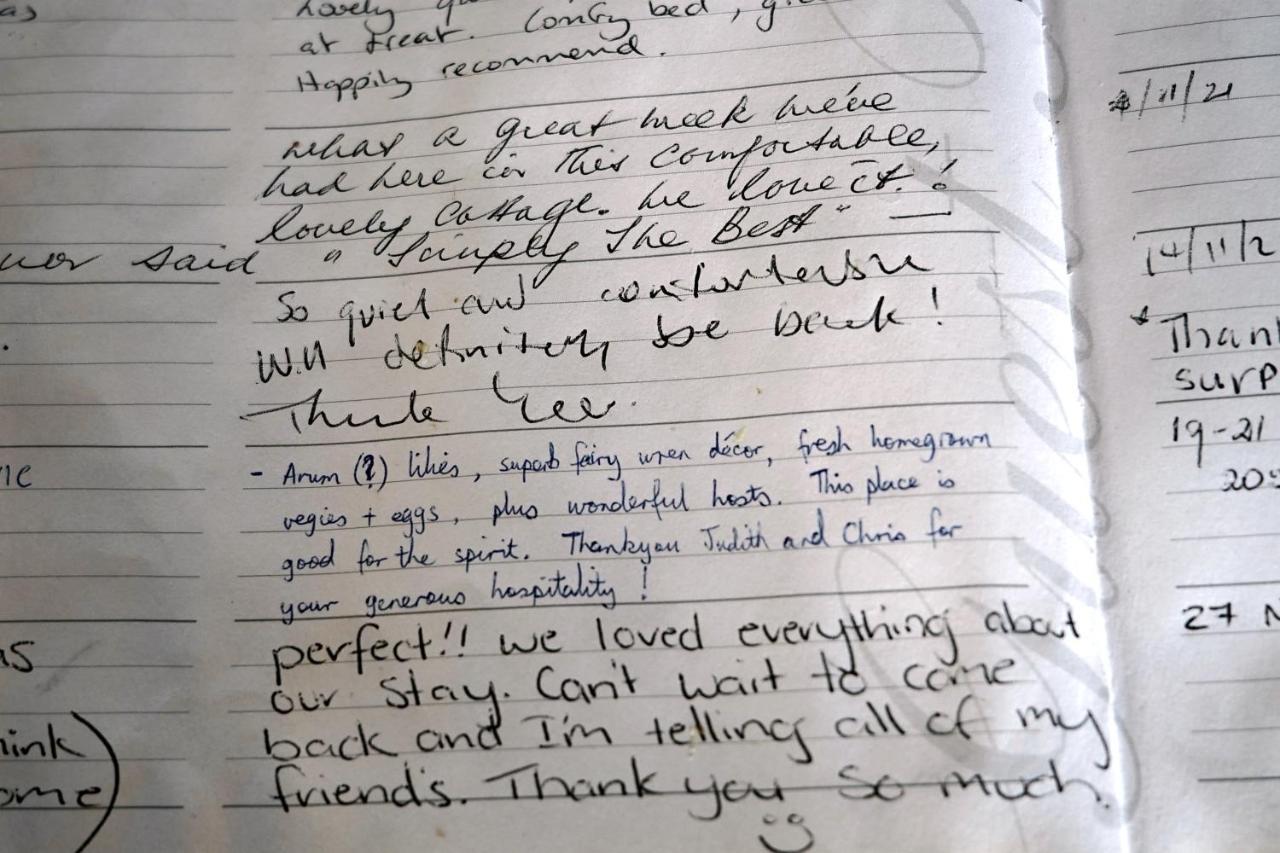 as
Lovely
at treat. Comfy bed,
Happily recommend.
what a great week we've
had here in this comfortable,
lovely cottage. We love it. !
said "Simply The Best"
So quiet and
Will definitely be back!
Thank You.
ne
- Arum (?) lilies, superb fairy wren décor, fresh homegrown
vegies + eggs, plus wonderful hosts. This place is
good for the spirit. Thankyou Judith and Chris for
your generous hospitality!
as
perfect!! We loved everything about
our stay. Can't wait to come
hink) back and I'm telling all of my
ome) friends. Thank you so much.
/11/21
14/11/2
* Than
surp
19-21
20
27 N
Guest